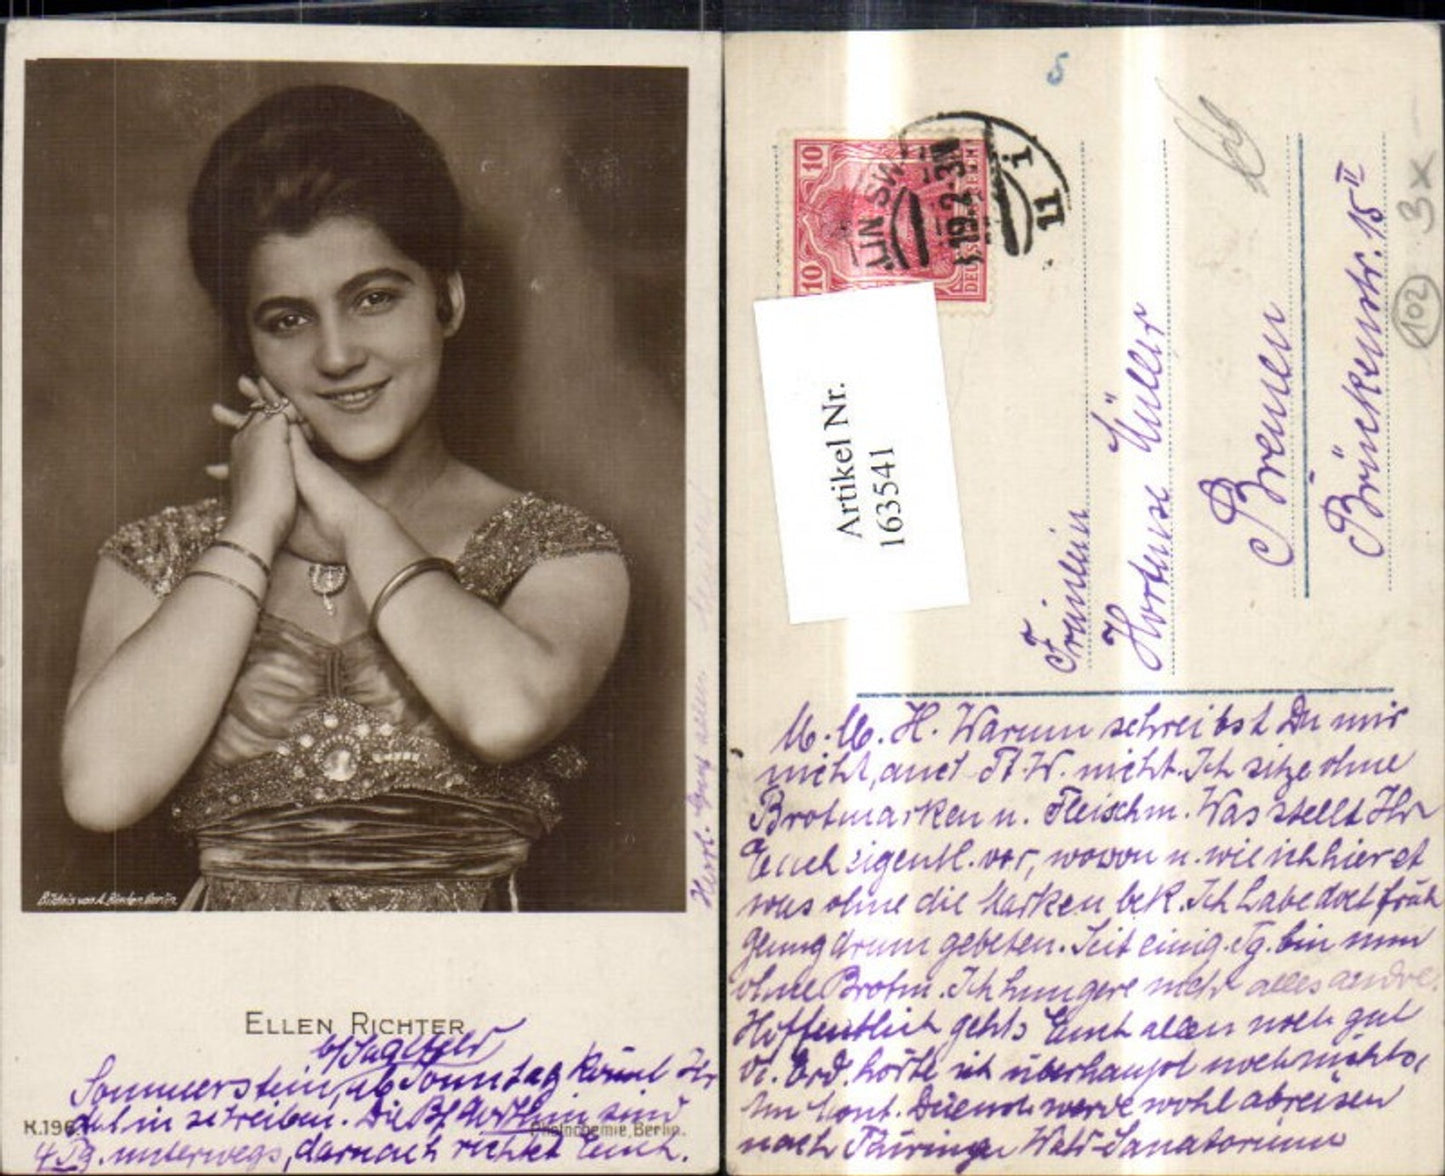 Bildnis von A. Binder Berlin
ELLEN RICHTER
K.196
Photochemie, Berlin.
b/Saalfeld
Sommerstein, ab Sonntag könnt Ihr
dahin schreiben. Die Bf. dorthin sind
4 Tg. unterwegs, darnach richtet Euch.
Herzl. Gruß allen
5
3x
102
10
10
11
Artikel Nr.
163541
Fräulein
Hortense Müller
Bremen
Brückenstr. 15 II
M. lb. H. Warum schreibst Du mir
nicht, auch Tt W. nicht. Ich sitze ohne
Brotmarken u. Fleischm. Was stellt Ihr
Euch eigentl. vor, wovon u. wie ich hier et
was ohne die Marken bek. Ich habe doch früh
genug drum gebeten. Seit einig. Tg. bin nun
ohne Brotm. Ich hungere mehr alles andre.
Hoffentlich gehts Euch allen noch gut
v. Erd. hörte ich überhaupt noch nichts,
Am Mont. Dienst. werde wohl abreisen
nach Thüringer Wald-Sanatorium